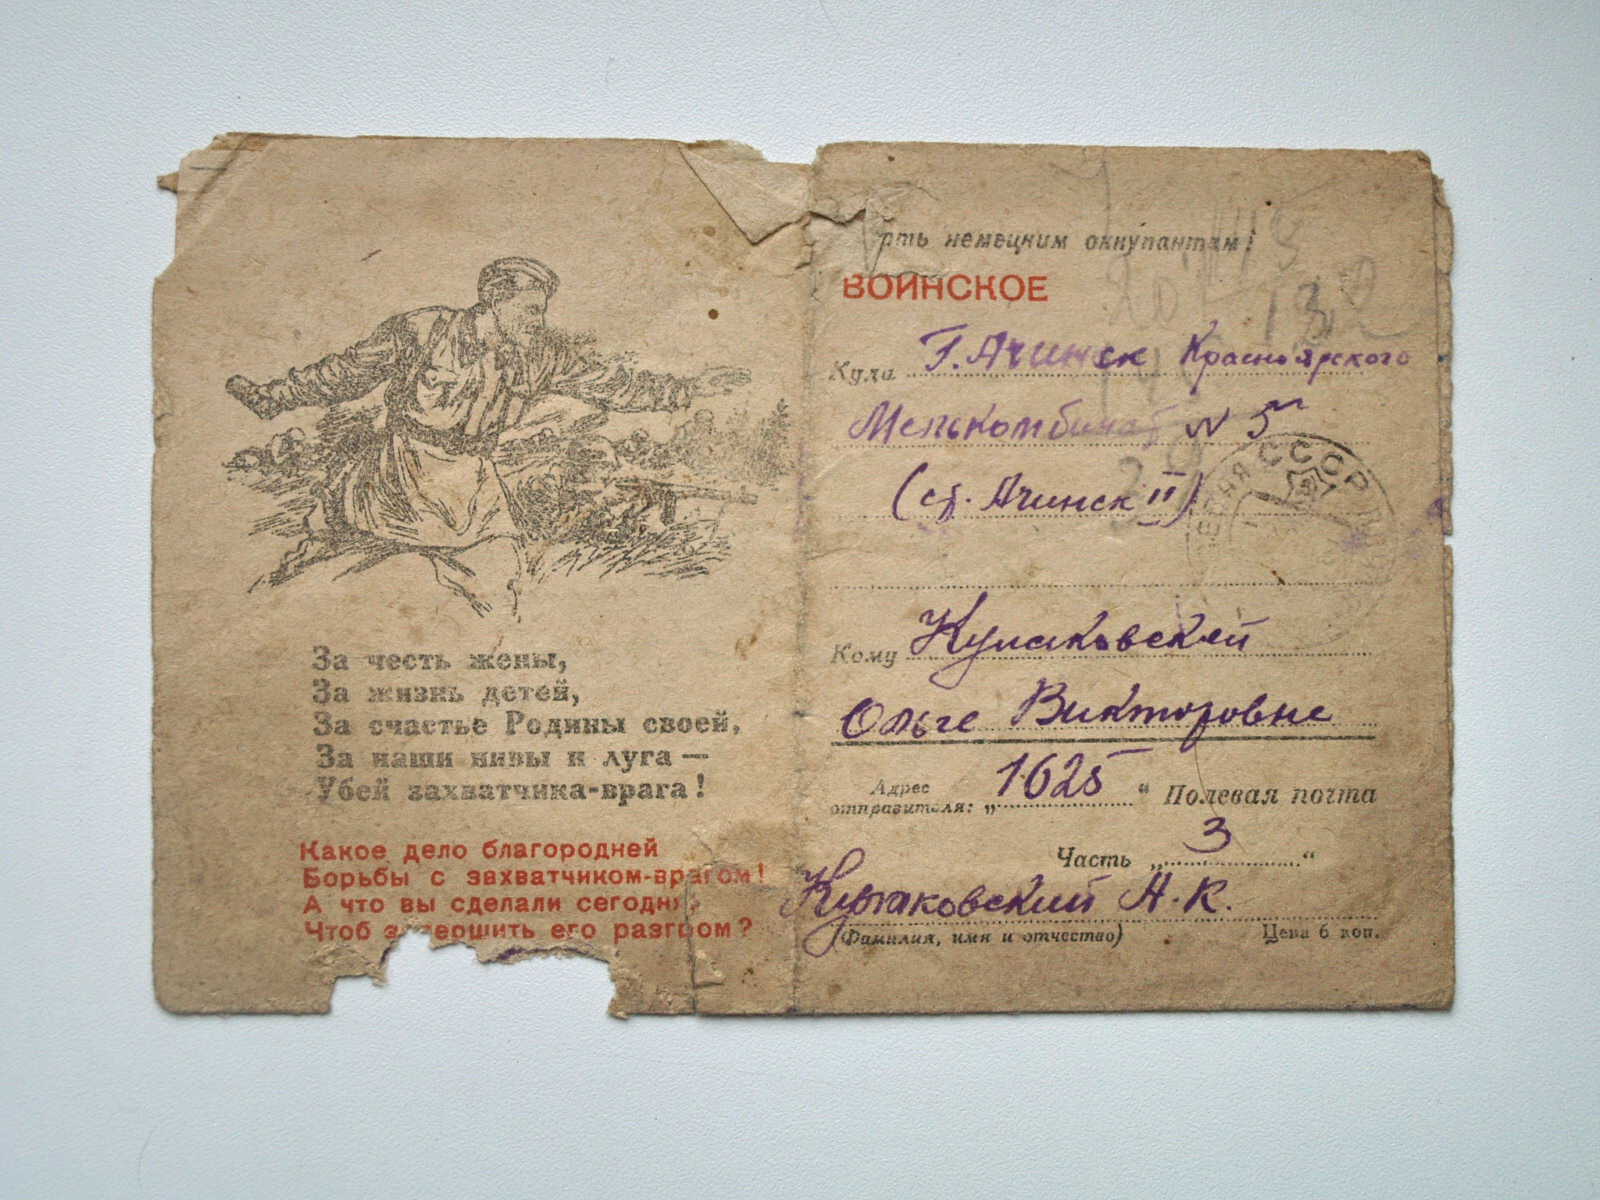 За честь жены,
За жизнь детей,
За счастье Родины своей,
За наши нивы и луга —
Убей захватчика-врага!
Какое дело благородней
Борьбы с захватчиком-врагом!
А что вы сделали сегодня,
Чтоб завершить его разгром?
рть немецким оккупантам!
ВОИНСКОЕ
Куда Г. Ачинск Красноярского
Мелькомбинат № 5
(ст. Ачинск II)
СССР
Кому Кулаковской
Ольге Викторовне
Адрес отправителя: „1625“ Полевая почта
Часть „3“
Кулаковский А. К.
(Фамилия, имя и отчество) Цена 6 коп.